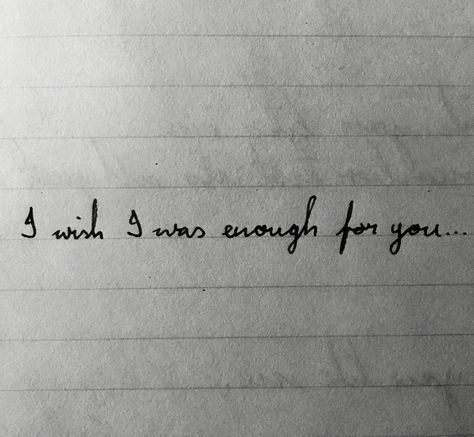 I wish I was enough for you...